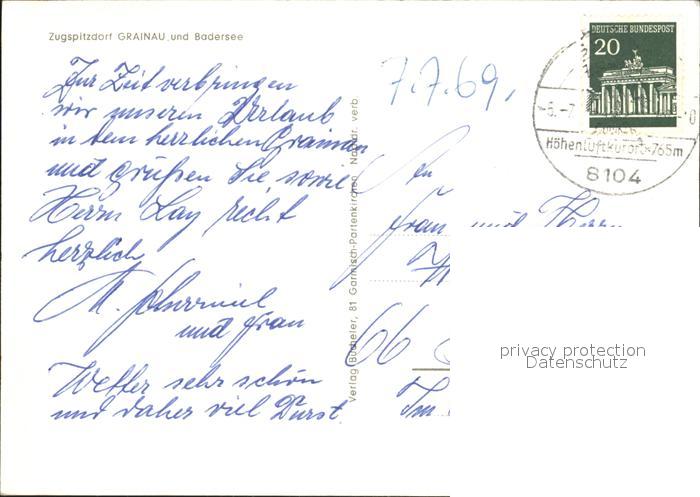 Zugspitzdorf GRAINAU und Badersee
Zur Zeit verbringen
wir unseren Urlaub
in dem herrlichen Grainau
und grüßen Sie sowie
Herrn Lay recht
herzlich
und Frau
Wetter sehr schön
und daher viel Durst.
Verlag Bücheler, 81 Garmisch-Partenkirchen Nachdr. verb.
7.7.69.
DEUTSCHE BUNDESPOST
20
-6.-7.
Höhenluftkurort
765m
8104
An
Frau und Herrn
66
Im
privacy protection
Datenschutz